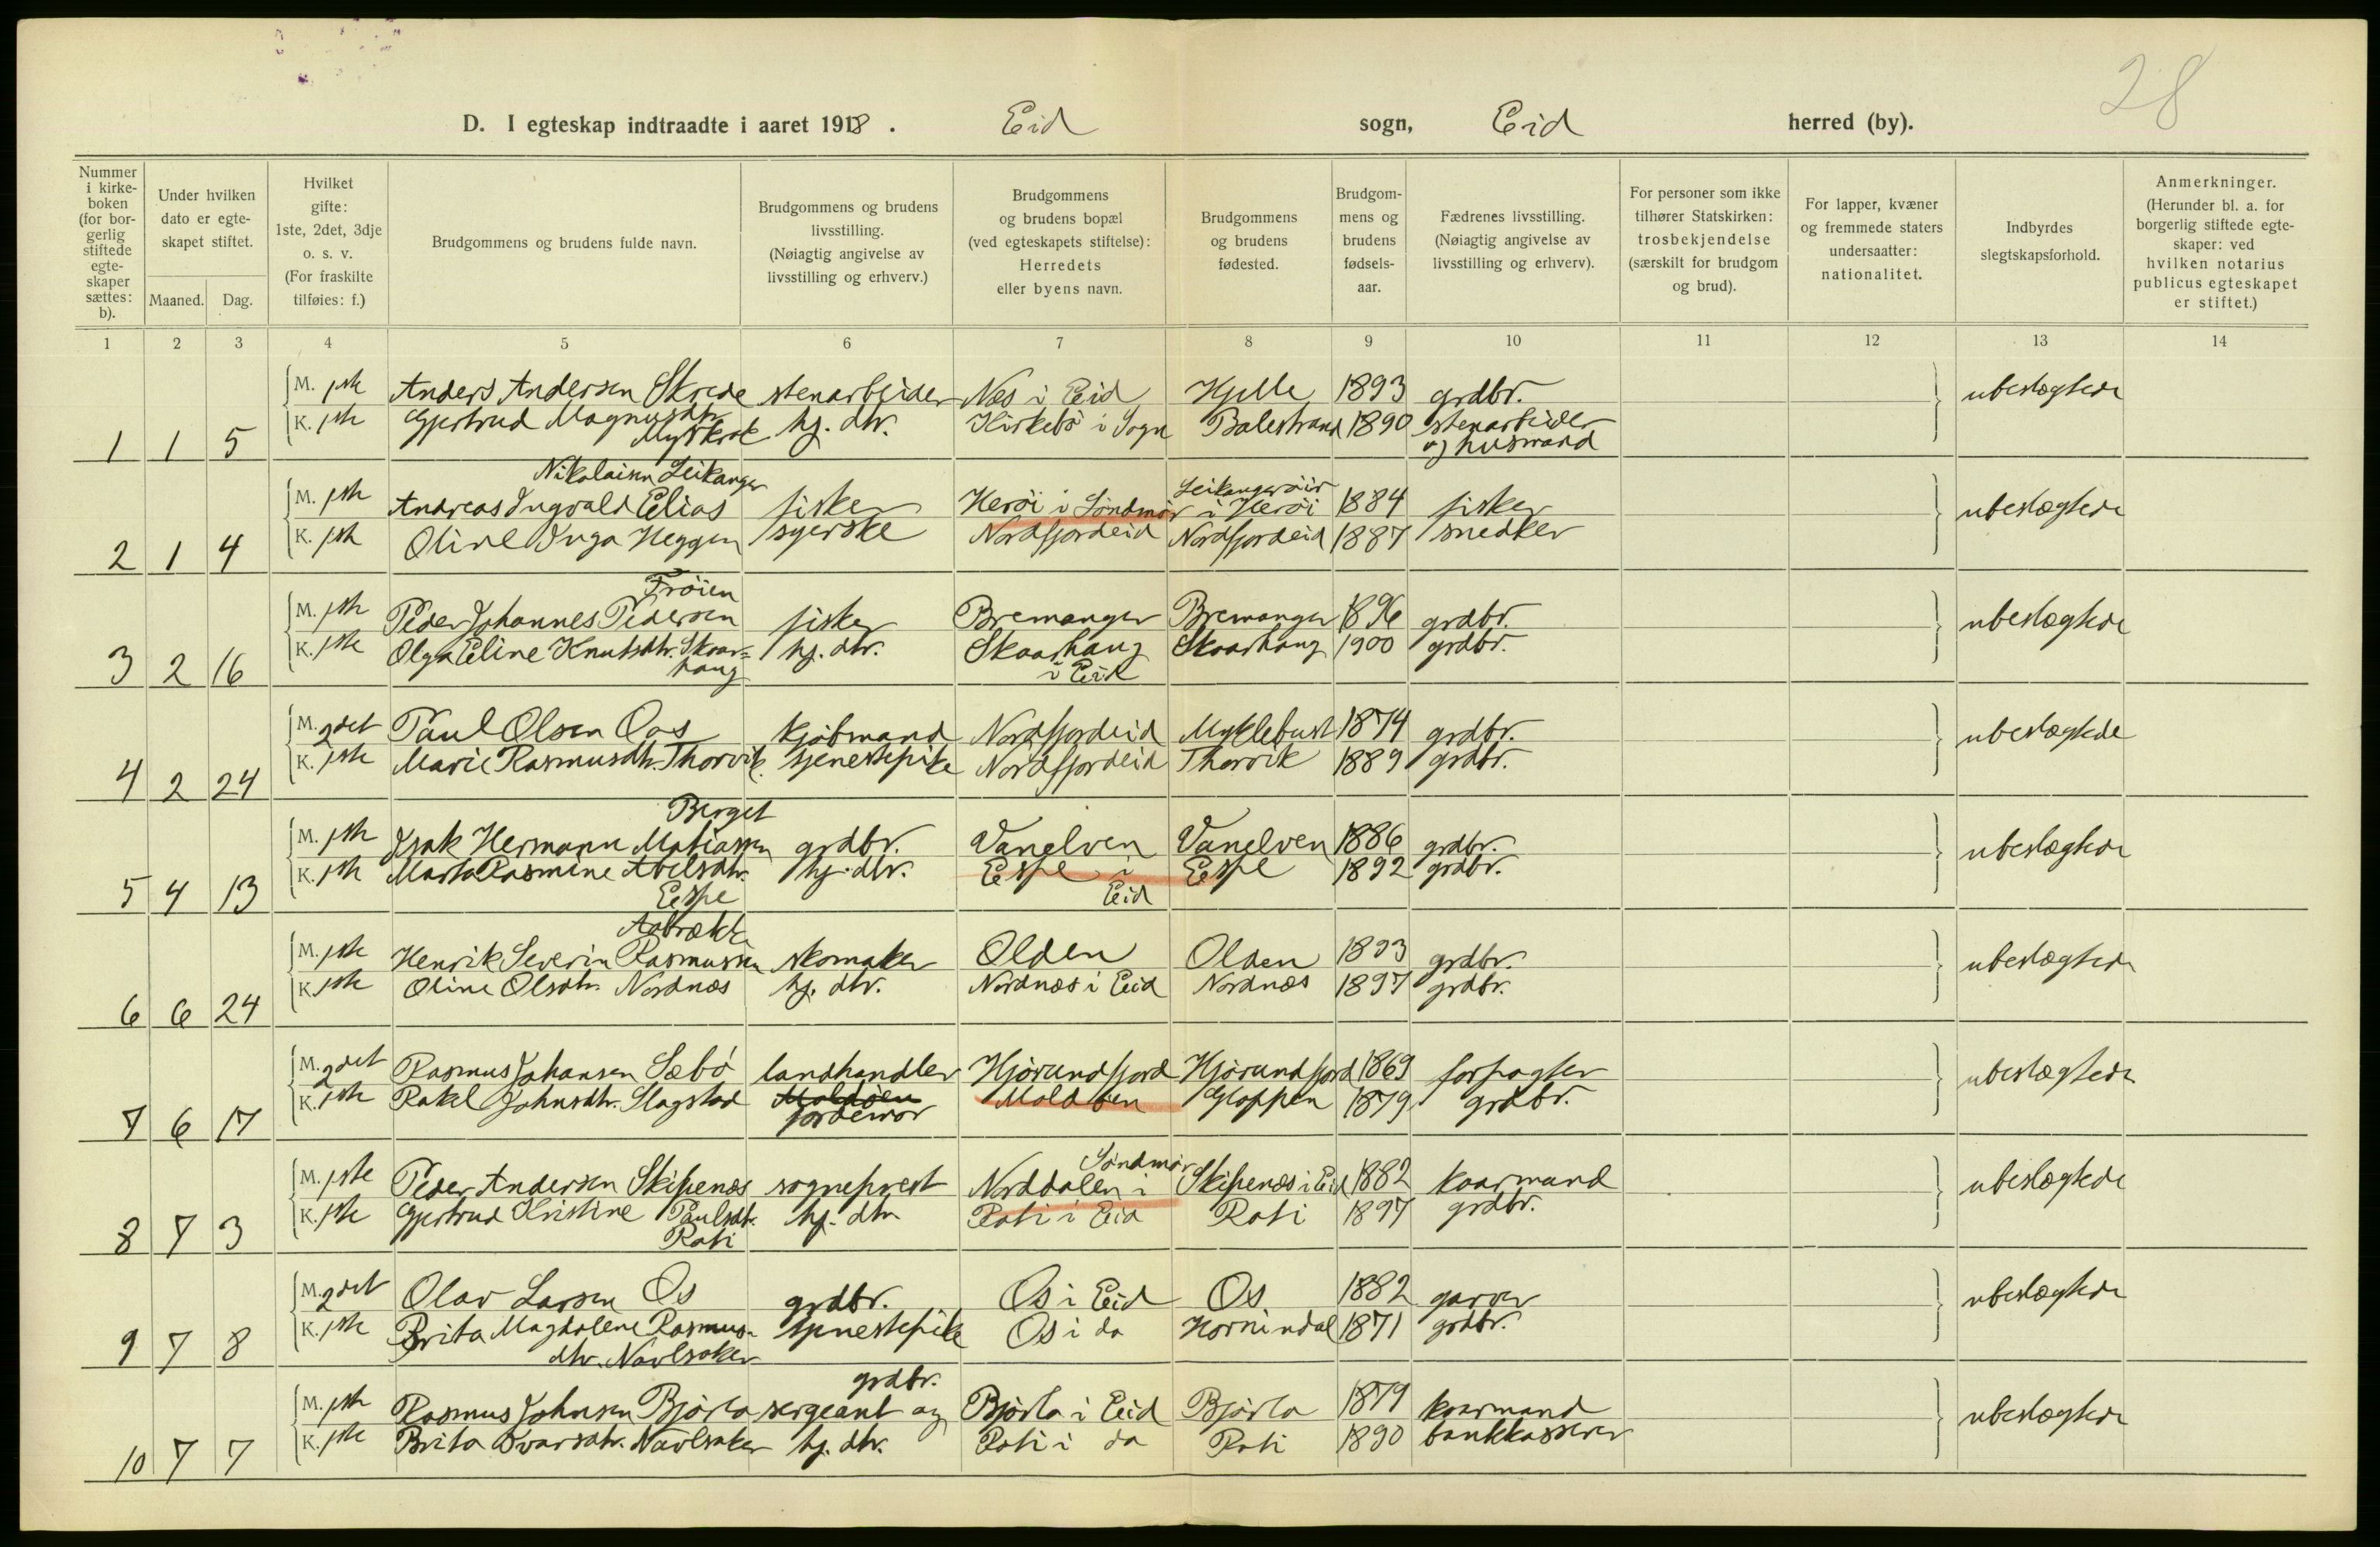 28
D. I egteskap indtraadte i aaret 1918. Eid sogn, Eid herred (by).
Nummer i kirke- boken (for bor- gerlig stiftede egte- skaper sættes: b).
Under hvilken dato er egte- skapet stiftet.
Maaned. Dag.
Hvilket gifte: 1ste, 2det, 3dje o. s. v. (For fraskilte tilføies: f.)
Brudgommens og brudens fulde navn.
Brudgommens og brudens livsstilling. (Nøiagtig angivelse av livsstilling og erhverv.)
Brudgommens og brudens bopæl (ved egteskapets stiftelse): Herredets eller byens navn.
Brudgommens og brudens fødested.
Brudgom- mens og brudens fødsels- aar.
Fædrenes livsstilling. (Nøiagtig angivelse av livsstilling og erhverv).
For personer som ikke tilhører Statskirken: trosbekjendelse (særskilt for brudgom og brud).
For lapper, kvæner og fremmede staters undersaatter: nationalitet.
Indbyrdes slegtskapsforhold.
Anmerkninger. (Herunder bl. a. for borgerlig stiftede egte- skaper: ved hvilken notarius publicus egteskapet er stiftet.)
1 2 3 4 5 6 7 8 9 10 11 12 13 14
M. 1ste Anders Andersen Skrede stenarbeider Nes i Eid Hjelle 1893 grdbr. ubeslægtede
K. 1ste Gjertrud Magnusdtr. hj. dtr. Kirkebö i Sogn Balestrand 1890 stenarbeider
1 1 5 og husmand
Nikolaisen Leikanger
M. 1ste Andreas Ingvald Elias fisker Herøi i Söndmör i Herøi 1884 fisker ubeslægtede
K. 1ste Oline Inga Heggen syerske Nordfjordeid Nordfjordeid 1887 snedker
2 1 4
Frøien
M. 1ste Peder Johannes Pedersen fisker Bremanger Bremanger 1896 grdbr. ubeslægtede
K. 1ste Olga Eline Knutsdtr. Skaar= hj. dtr. Skaarhaug Skaarhaug 1900 grdbr.
3 2 16 haug i Eid
M. 2det Paul Olsen Oos kjøbmand Nordfjordeid Myklebust 1874 grdbr. ubeslægtede
K. 1ste Marie Rasmusdtr. Thorvik tjenestepike Nordfjordeid Thorvik 1889 grdbr.
4 2 24
Berget
M. 1ste Isak Hermann Matiassen grdbr. Vanelven Vanelven 1886 grdbr. ubeslægtede
K. 1ste Marta Rasmine Abelsdtr. hj. dtr. Espe i Espe 1892 grdbr.
5 4 13 Espe Eid
Aabrække
M. 1ste Henrik Severin Rasmussen skomaker Olden Olden 1893 grdbr. ubeslægtede
K. 1ste Oline Olsdtr. Nordnæs hj. dtr. Nordnæs i Eid Nordnæs 1897 grdbr.
6 6 24
M. 2det Rasmus Johansen Sæbö landhandler Hjörundfjord Hjörundfjord 1869 forpagter ubeslægtede
K. 1ste Rakel Johnsdtr. Slagstad Moldöen Moldöen Gloppen 1879 grdbr.
7 6 17 jordemor
Söndmör
M. 1ste Peder Andersen Skipenæs sogneprest Norddalen i Skipenæs i Eid 1882 kaarmand ubeslægtede
K. 1ste Gjertrud Kristine Paulsdtr. hj. dtr. Roti i Eid Roti 1897 grdbr.
8 7 3 Roti
M. 2det Olav Larsen Os grdbr. Os i Eid Os 1882 garver ubeslægtede
K. 1ste Brita Magdalene Rasmus- tjenestepike Os i do Hornindal 1871 grdbr.
9 7 8 dtr. Navlsaker
grdbr.
M. 1ste Rasmus Johnsen Bjørlo sergeant og Bjørlo i Eid Bjørlo 1879 kaarmand ubeslægtede
K. 1ste Brita Ivarsdtr. Navlsaker hj. dtr. Roti i do Roti 1890 bankkasserer
10 7 7